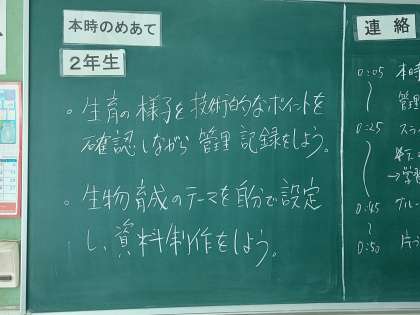 本時のめあて
2年生
。生育の様子を技術的なポイントを
確認しながら管理記録をしよう。
。生物育成のテーマを自分で設定
し、資料制作をしよう。
連絡
0:05 本時
管理
0:25
→学習
0:45 グルー
0:50 片づ